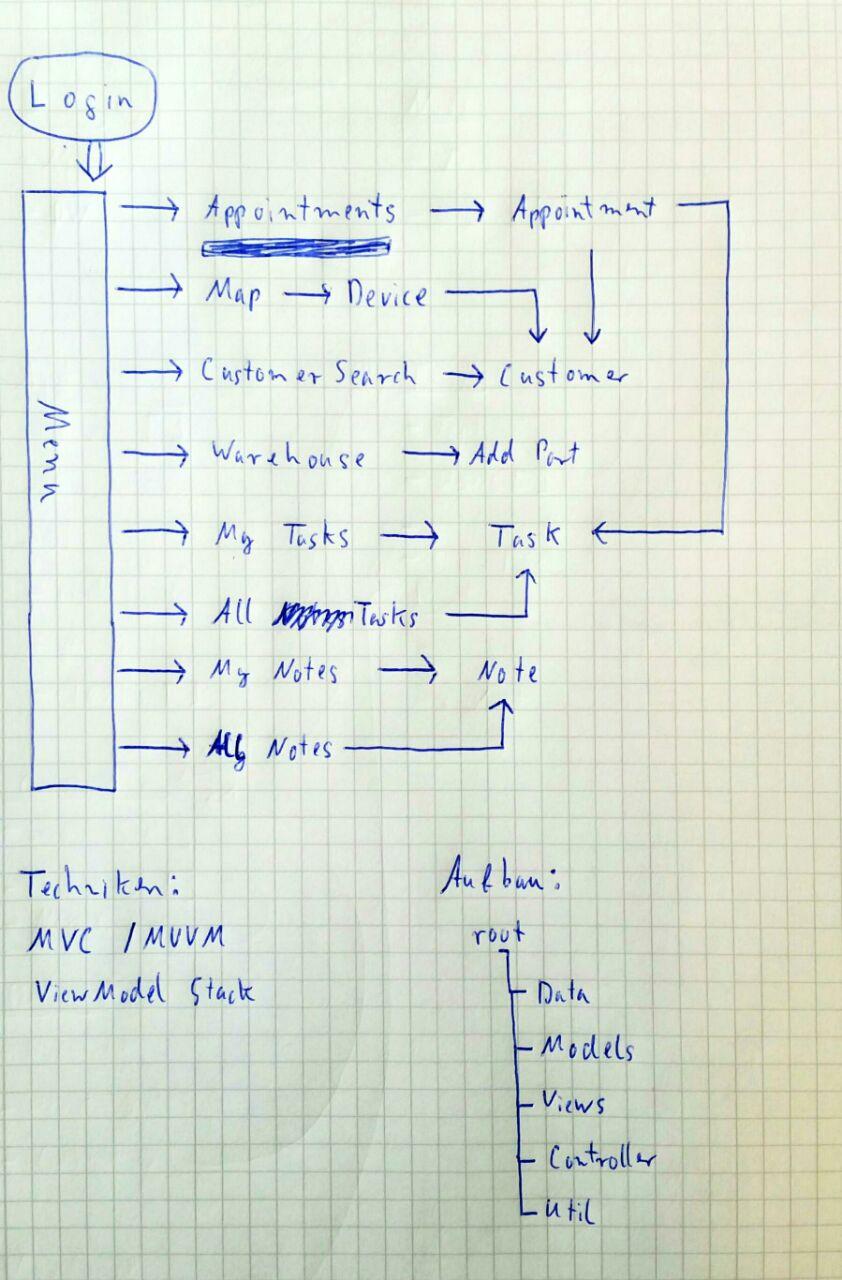 Login
Menu
Appointments Appointment
Map Device
Customer Search Customer
Warehouse Add Part
My Tasks Task
All Tasks
My Notes Note
All Notes
Techniken:
MVC / MVVM
ViewModel Stack
Aufbau:
root
Data
Models
Views
Controller
Util